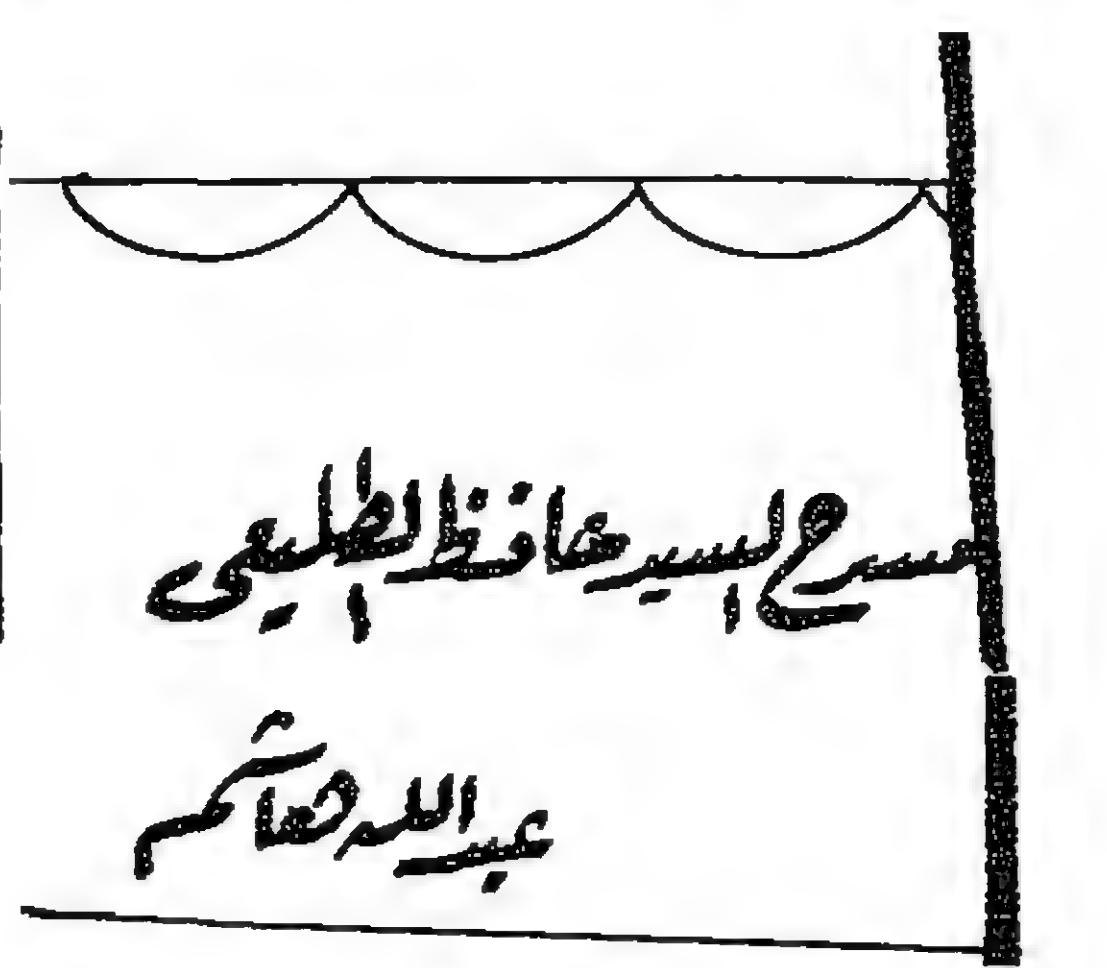 مسرح السيد حافظ الطليعي
عبد الله هاشم